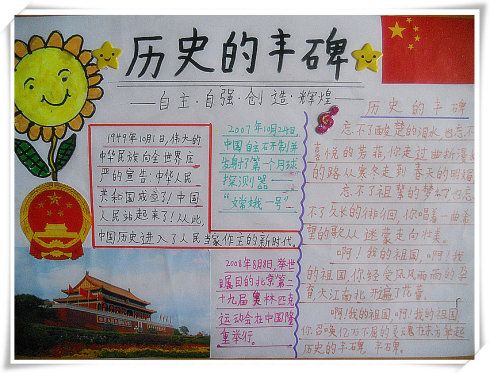 历史的丰碑
——自主·自强·创造·辉煌
1949年10月1日,伟大的
中华民族向全世界庄
严的宣告:中华人民
共和国成立了!中国
人民站起来了!从此,
中国历史进入了人民当家作主的新时代。
2007年10月24日,
中国自主研制并
发射了第一个月球
探测器——
“嫦娥一号”
2008年8月8日,举世
瞩目的北京第二
十九届奥林匹克
运动会在中国隆
重举行。
历史的丰碑
忘不了酸楚的泪水,也忘不
喜悦的芳菲,你走过曲折漫长
的路从寒冬走到春天的明媚
忘不了祖辈的梦幻,也忘
不了久长的徘徊,你唱着一曲希
望的歌从迷蒙走向壮美。
啊!我的祖国,啊!我
的祖国,你经受风风雨雨的孕
育,大江南北,开遍了花蕾。
啊!我的祖国,啊!我的祖国
你召唤亿万不屈的灵魂在东方举起
历史的丰碑,丰碑。